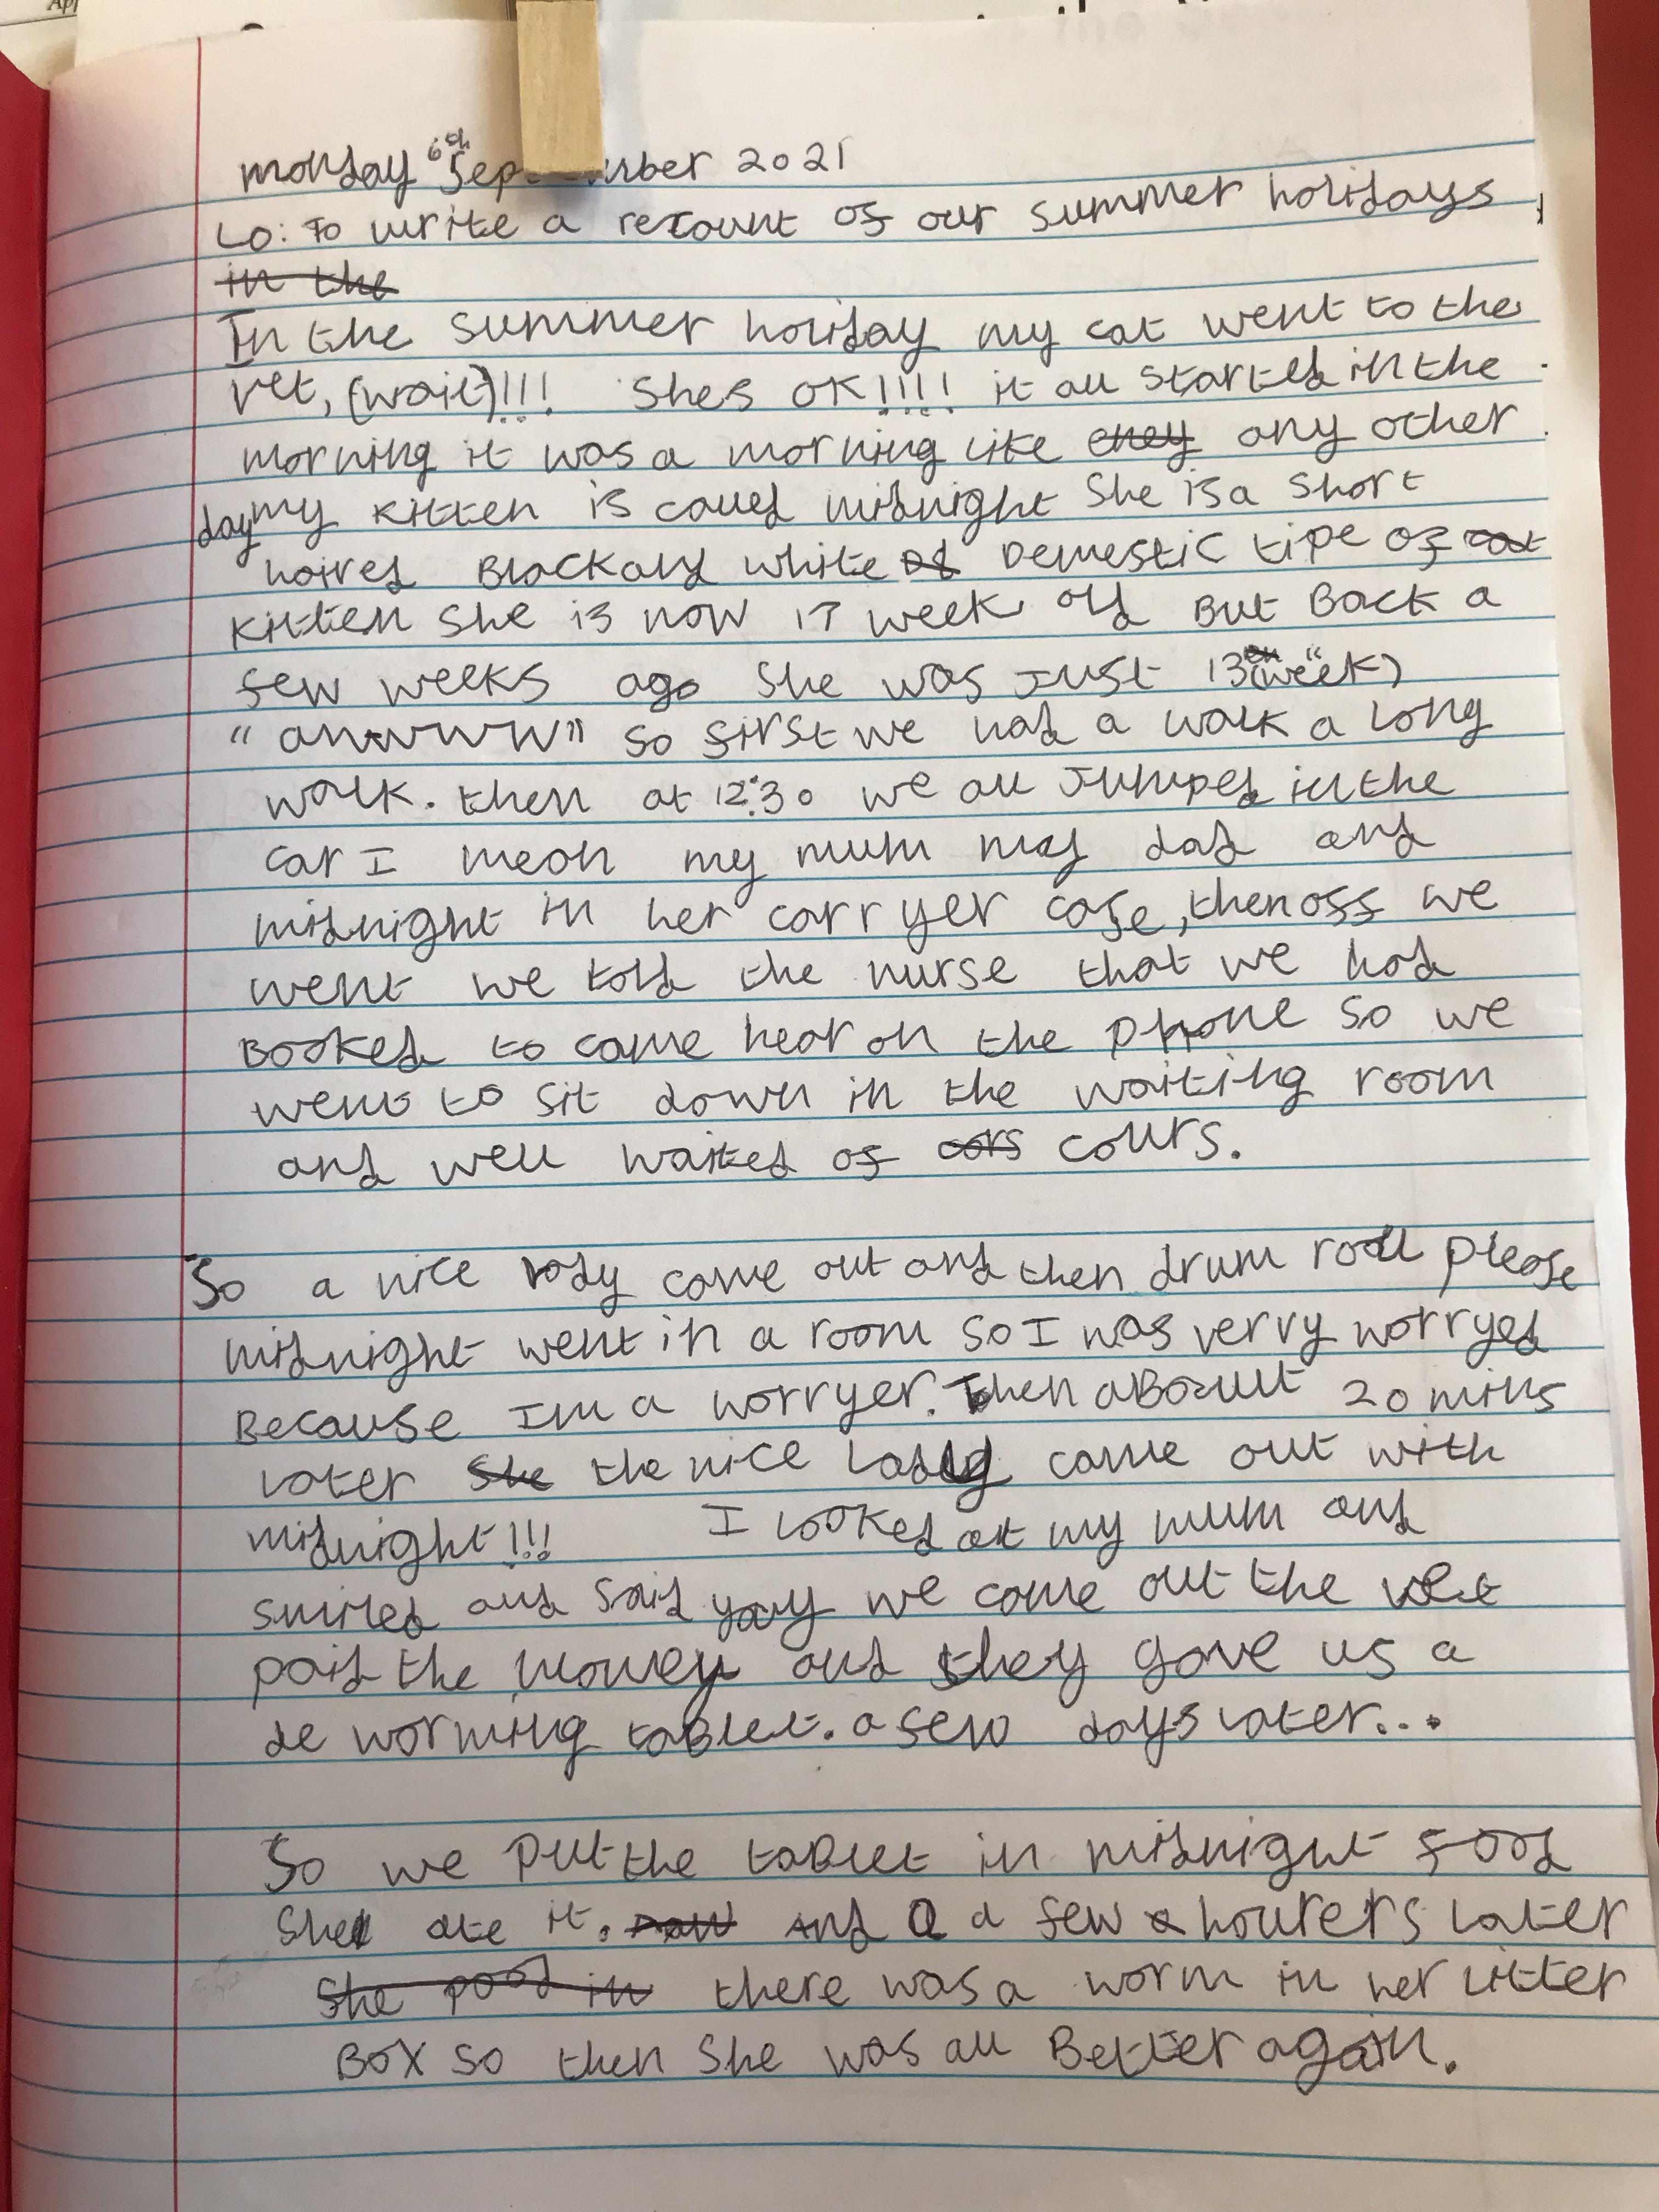 monday 6th Sep mber 2021
LO: To write a recount of our summer holidays
in the
In the summer holiday my cat went to the
vet, (wait)!!! Shes OK!!!! it all started in the
morning it was a morning like eney any other
day my kitten is called midnight She is a short
haired Black and white Demestic tipe of cat
kitten She is now 17 week old But Back a
few weeks ago She was Just 13 (week)
"awwww" So first we had a walk a long
walk. then at 12:30 we all Jumped in the
car I mean my mum my dad and
midnight in her carryer case, then off we
went we told the nurse that we had
Booked to come hear on the phone So we
went to sit down in the waiting room
and well waited of cors cours.
So a nice lady came out and then drum roll please
midnight went in a room So I was verry worryed
Because Im a worryer. Then aBout 20 mins
later She the nice Lady came out with
midnight!!! I Looked at my mum and
smiled and Said yay we came out the vet
paid the money and they gave us a
de worming taBlet. a few days later...
So we put the taBlet in midnight food
She ate it. And a few hourers Later
She pood in there was a worm in her Litter
Box So then She was all Better again.